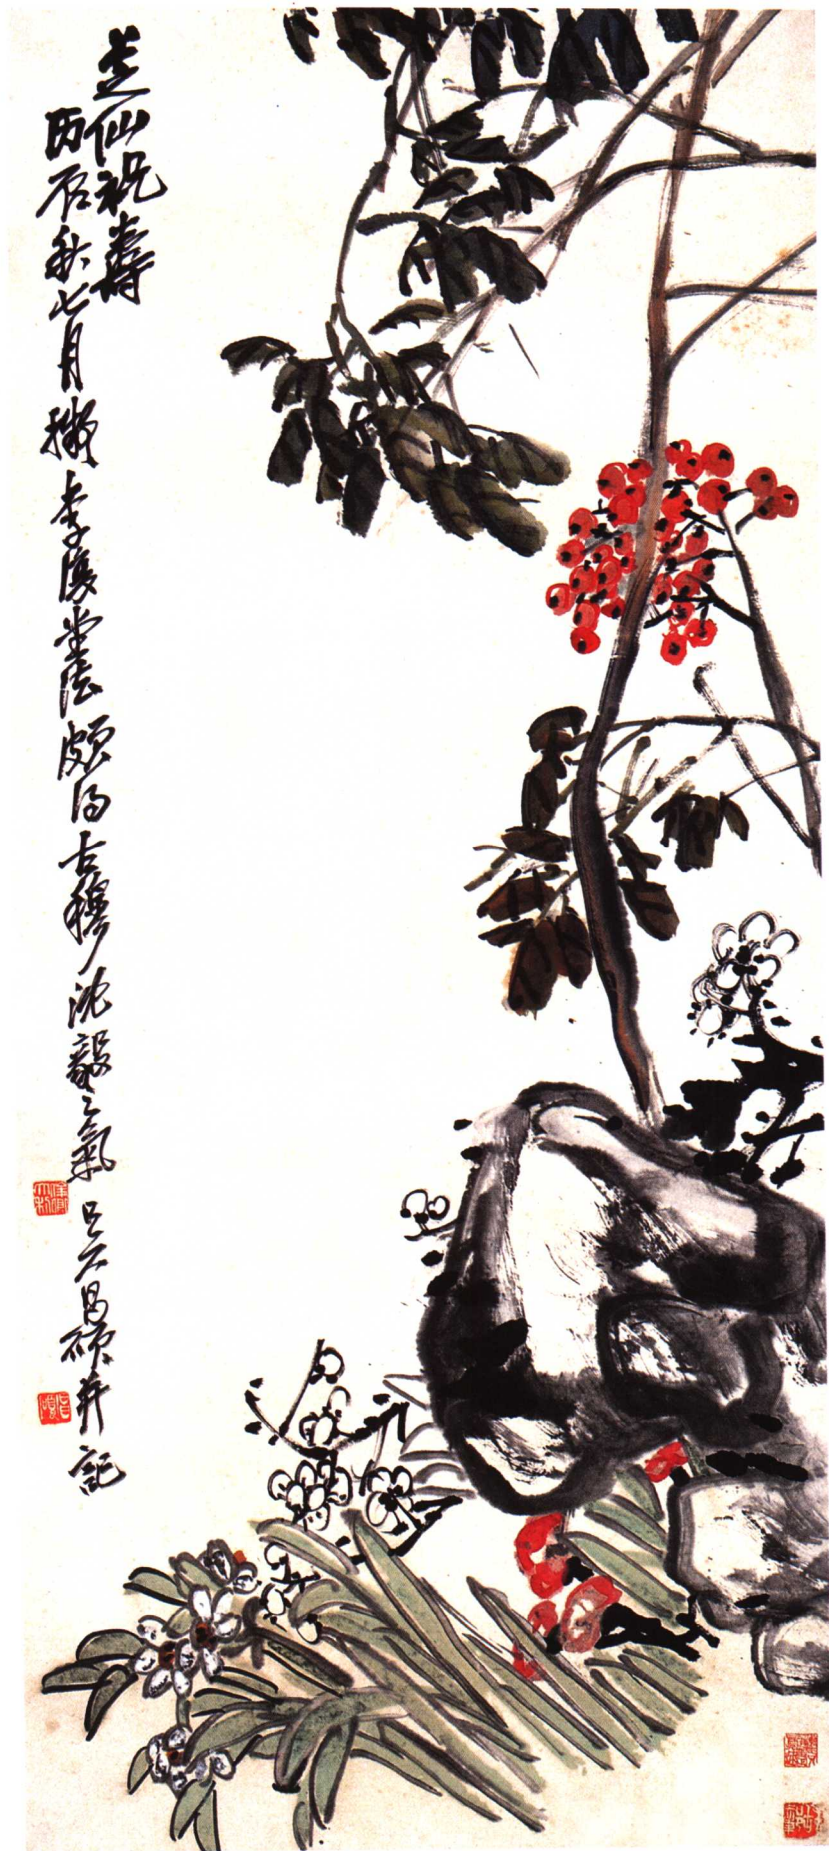 芝仙祝壽
丙辰秋七月擬李復堂法頗得古穆沈毅之氣 吳昌碩并記